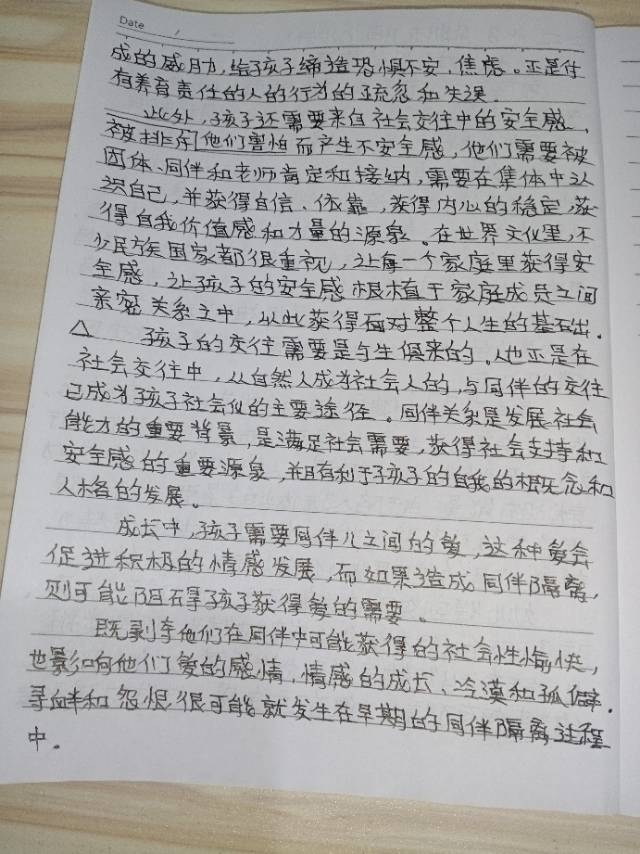 Date /
成的威力,给孩子缔造恐惧不安,焦虑。正是什
有养育责任的人的行为的疏忽和失误.
此外,孩子还需要来自社会交往中的安全感,
被排斥他们害怕而产生不安全感,他们需要被
团体、同伴和老师肯定和接纳,需要在集体中认
识自己,并获得自信、依靠,获得内心的稳定,获
得自我价值感和力量的源泉。在世界文化里,不
少民族国家都很重视,让每一个家庭里获得安
全感,让孩子的安全感根植于家庭成员之间
亲密关系之中,从此获得面对整个人生的基础.
△ 孩子的交往需要是与生俱来的.人也正是在
社会交往中,从自然人成为社会人的,与同伴的交往
已成为孩子社会化的主要途径。同伴关系是发展社会
能力的重要背景,是满足社会需要,获得社会支持和
安全感的重要源泉,并且有利于孩子的自我的概念和
人格的发展。
成长中,孩子需要同伴儿之间的爱,这种爱会
促进积极的情感发展,而如果造成同伴隔离,
则可能阻碍孩子获得爱的需要。
既剥夺他们在同伴中可能获得的社会性愉快,
也影响他们爱的感情,情感的成长、冷漠和孤僻.
寻衅和怨恨很可能就发生在早期的同伴隔离过程
中.